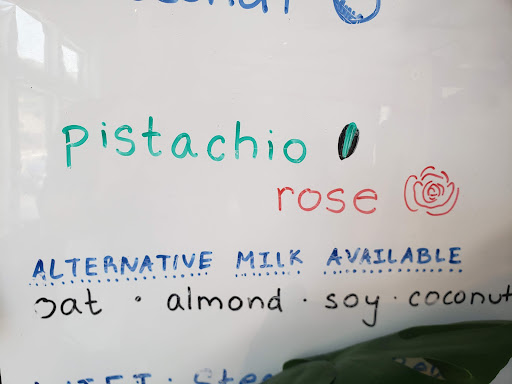 pistachio
rose
ALTERNATIVE MILK AVAILABLE
oat · almond · soy · coconut